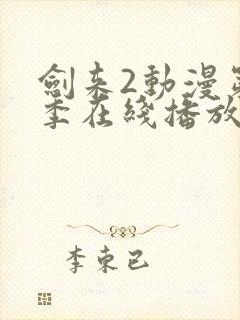 劍来2動漫第
季在綫播放
李東已